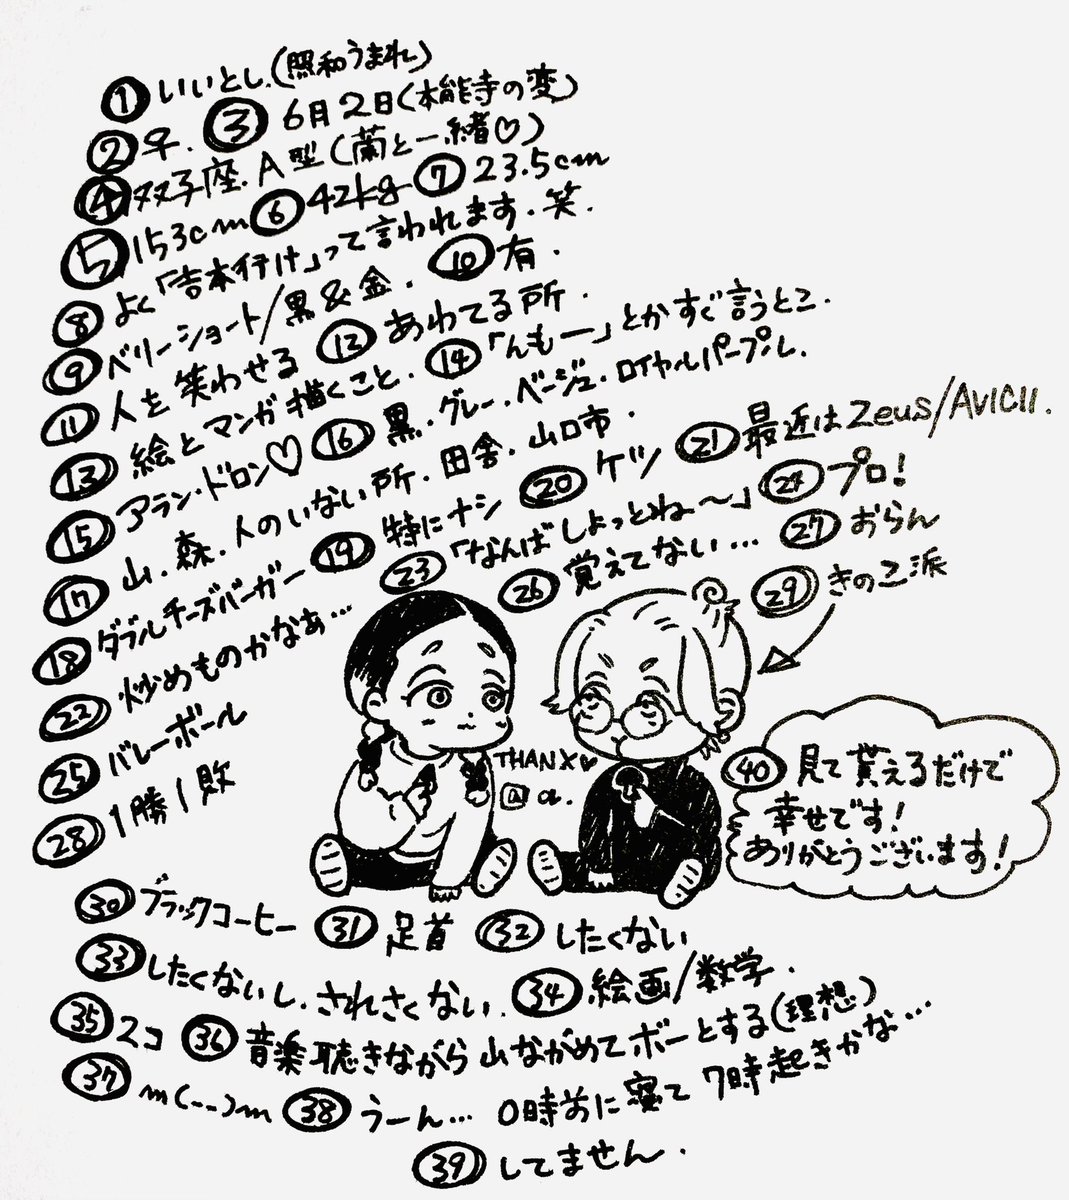 ① いいとし.(照和うまれ)
② 早. ③ 6月2日(本能寺の変)
④ 双子座.A型(蘭と一緒♡)
⑤ 153cm ⑥ 42kg ⑦ 23.5cm
⑧ よく「吉本行け」って言われます.笑.
⑨ ベリーショート/黒&金. ⑩ 有.
⑪ 人を笑わせる ⑫ あわてる所.
⑬ 絵とマンガ描くこと. ⑭ 「んもー」とかすぐ言うとこ.
⑮ アラン・ドロン♡ ⑯ 黒.グレー.ベージュ.ロイヤルパープル.
⑰ 山.森.人のいない所.田舎.山口市.
⑱ ダブルチーズバーガー ⑲ 特にナシ ⑳ ケツ ㉑ 最近はZeus/AVICII.
㉒ 炒めものかなぁ… ㉓ 「なんばしよっとね〜」 ㉔ プロ!
㉕ バレーボール ㉖ 覚えてない… ㉗ おらん
㉘ 1勝1敗 ㉙ きのこ派
THANX♥
@a.
㊵ 見て貰えるだけで
幸せです!
ありがとうございます!
㉚ ブラックコーヒー ㉛ 足首 ㉜ したくない
㉝ したくないし.されさくない. ㉞ 絵画/数学.
㉟ スコ ㊱ 音楽聴きながら山ながめてボーとする(理想)
㊲ m(--)m ㊳ うーん… 0時前に寝て7時起きかな…
㊴ してません.